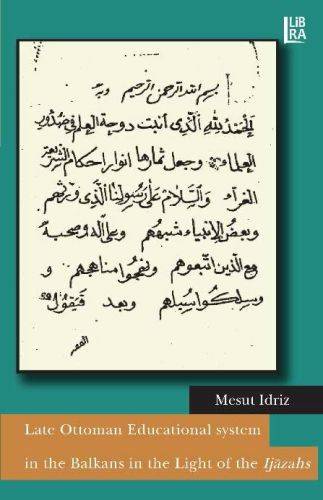 LiB
RA
بسم الله الرحمن الرحيم وبه
الحمد لله الذى انبت دوحة العلم فى صدور
العلماء وجعل ثمارها انوار احكام الشريعة
الغراء والسلام على رسولنا الذى ورثهم
وبعض الانبياء شبههم وعلى اله وصحبه
مع الذين اتبعوهم ونهجوا مناهجهم و
وسلكوا سبيلهم وبعد فيقول
الفقير
Mesut Idriz
Late Ottoman Educational system
in the Balkans in the Light of the Ijāzahs